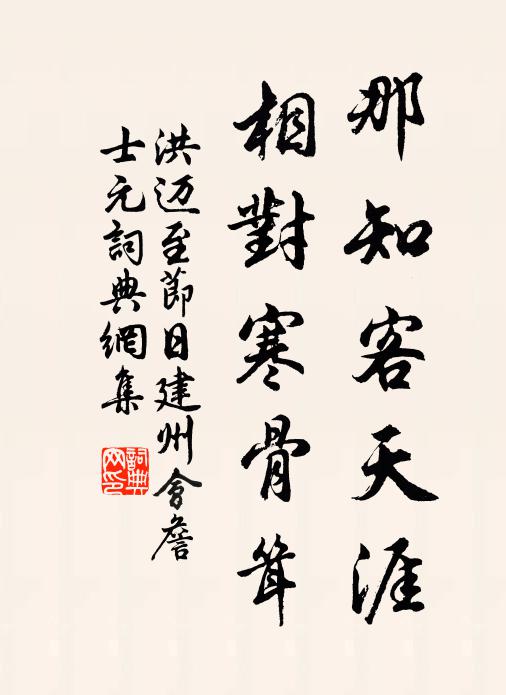 那知客天涯
相對寒骨聳
洪迈至節日建州會詹
士元詞典網集
詞典网印